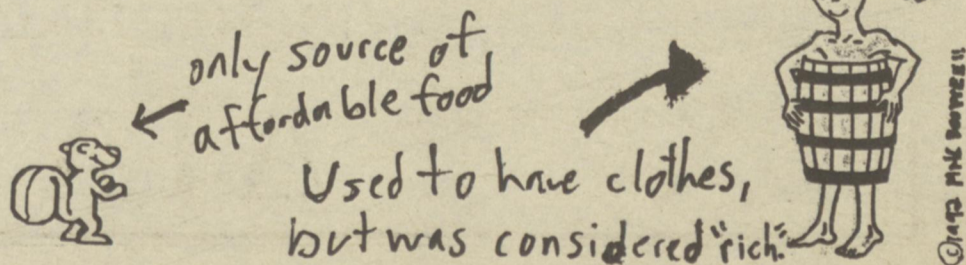 only source of
affordable food
Used to have clothes,
but was considered "rich."
©1992